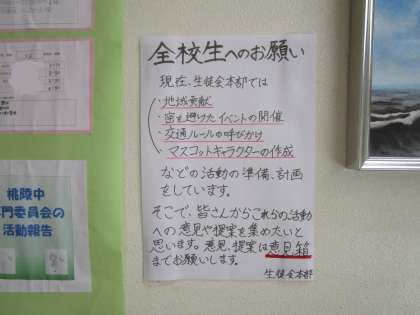 全校生へのお願い
現在、生徒会本部では
・地域貢献
・密を避けたイベントの開催
・交通ルールの呼びかけ
・マスコットキャラクターの作成
などの活動の準備、計画
をしています。
そこで、皆さんからこれらの活動
への意見や提案を集めたいと
思います。意見、提案は意見箱
までお願いします。
生徒会本部
桃陵中
専門委員会の
活動報告